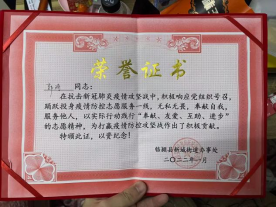 荣誉证书
同志：
在抗击新冠肺炎疫情攻坚战中，积极响应党组织号召，
踊跃投身疫情防控志愿服务一线，无私无畏，奉献自我，
服务他人，以实际行动践行“奉献、友爱、互助、进步”
的志愿精神，为打赢疫情防控攻坚战作出了积极贡献。
特颁此证，以资纪念！
临颍县新城街道办事处
二〇二二年一月